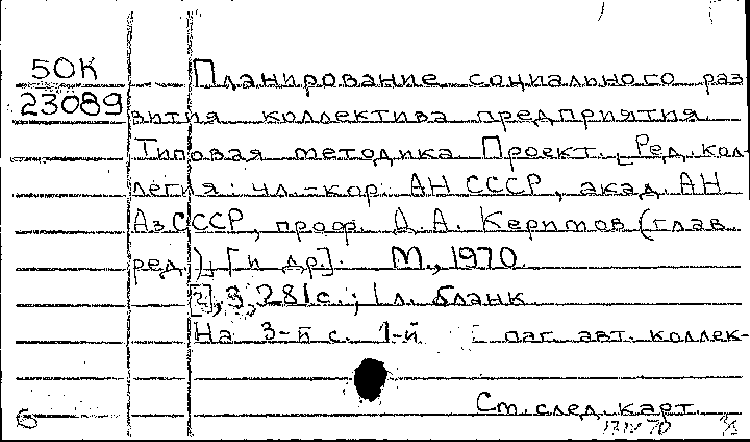 50К
23089
Планирование социального раз
вития коллектива предприятия
Типовая методика Проект. [Ред. кол-
легия: чл.-кор. АН СССР, акад. АН
АзСССР, проф. Д. А. Керимов (глав.
ред.), [и др.]. М., 1970.
[2], 9, 281 с.; 1 л. бланк.
На 3-й с. 1-й паг. авт. коллек-
См. след. карт.
б